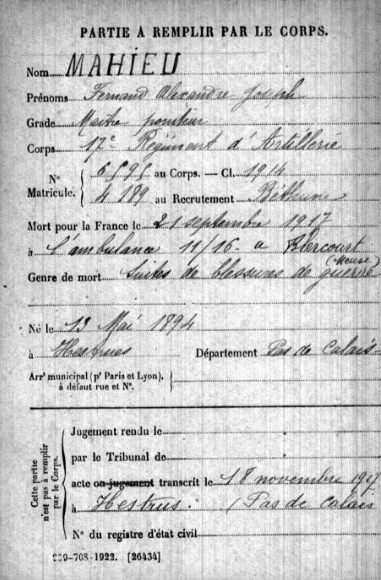 PARTIE À REMPLIR PAR LE CORPS.
Nom MAHIEU
Prénoms Fernand Alexandre Joseph
Grade Maître pointeur
Corps 17e Régiment d'Artillerie
N° Matricule. { 6595 au Corps. — Cl. 1914
4189 au Recrutement Béthune
Mort pour la France le 21 septembre 1917
à l'ambulance 11/16 a Blercourt (Meuse)
Genre de mort Suites de blessures de guerre
Né le 13 Mai 1894
à Hestrus Département Pas de Calais
Arrt municipal (pr Paris et Lyon), à défaut rue et N°.
Cette partie n'est pas à remplir par le Corps.
Jugement rendu le
par le Tribunal de
acte ou jugement transcrit le 18 novembre 1917
à Hestrus. (Pas de Calais
N° du registre d'état civil
-708-1922. [26434]